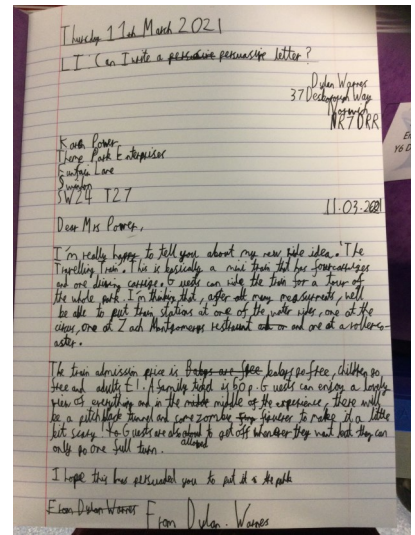 Thursday 11th March 2021
LI: Can I write a persuasive persuasive letter?
Dylan Warnes
37 Way
Norwich
NR7 DRR
Power
Theme Park Enterprises
Fountain Lane
Swindon
SW24 T27
11.03.2021
Dear Mrs Power,
I'm really happy to tell you about my new ride idea. 'The
Travelling Train. This is basically a mini train that has four cartriges
and one driving cartrige. Guests can ride the train for a tour of
the whole park. I'm thinking that, after all many measurments, we'll
be able to put train stations at one of the water rides, one at the
circus, one at Zach Montgomerys or and one at a rollerco-
aster.
The train admission price is Babys are free babys go free, children go
free and adults £1. A family ticket is 60p. Guests can enjoy a lovely
view of everything and in the middle of the experience, there will
be a pitchblack tunnel and some zomby figures to make it a little
bit scary. Guests are also allowed to get off whenever they want but they can
only go one full turn.
I hope this has persuaded you to put it in the park
From Dylan Warnes From Dylan. Warnes
Y6